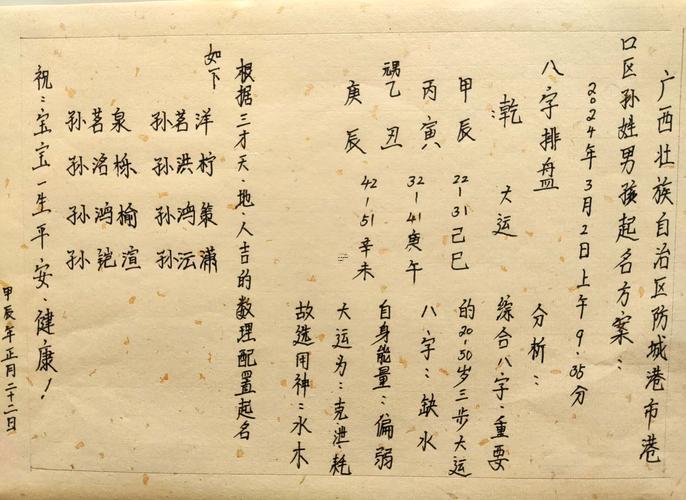 广西壮族自治区防城港市港
口区孙姓男孩起名方案：
2024年3月2日上午9.35分
八字排盘
分析：
乾
大运
综合八字、重要
甲辰
22-31己巳
的20-50岁三步大运
丙寅
32-41庚午
八字：缺水
乙丑
42-51辛未
自身能量：偏弱
庚辰
大运为：克泄耗
故选用神：水木
根据三才天、地、人吉的数理配置起名
如下
孙茗洋
孙洪柠
孙鸿策
孙沄潇
孙茗泉
孙洺栎
孙鸿榆
孙铠渲
祝：宝宝一生平安、健康！
甲辰年正月二十二日